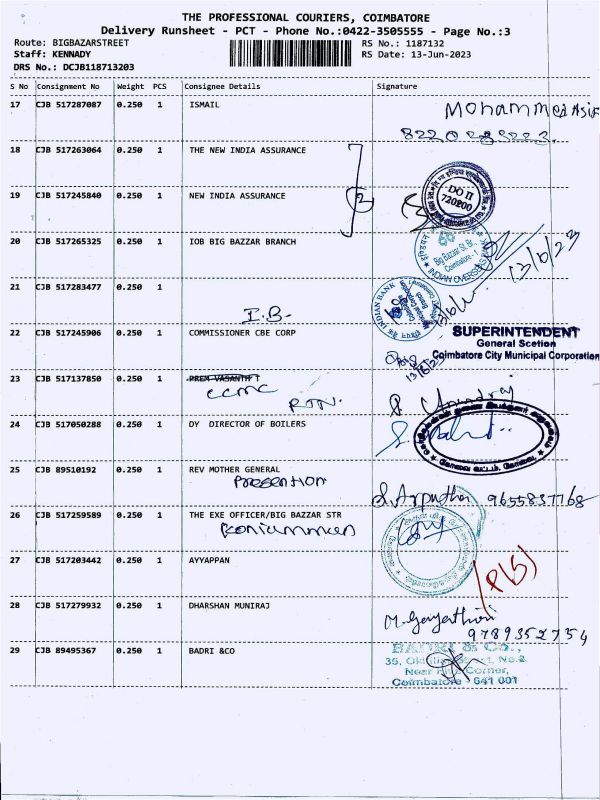 THE PROFESSIONAL COURIERS, COIMBATORE
Delivery Runsheet - PCT - Phone No.:0422-3505555 - Page No.:3
Route: BIGBAZARSTREET
RS No.: 1187132
Staff: KENNADY
RS Date: 13-Jun-2023
DRS No.: DCJB118713203
S No Consignment No Weight PCS Consignee Details Signature
17 CJB 517287087 0.250 1 ISMAIL Mohammed Asif
18 CJB 517263064 0.250 1 THE NEW INDIA ASSURANCE
DO II
720200
19 CJB 517245840 0.250 1 NEW INDIA ASSURANCE
20 CJB 517265325 0.250 1 IOB BIG BAZZAR BRANCH
Big Bazaar St. Br.,
Coimbatore - 1
INDIAN OVERSEAS BANK
13/6/23
21 CJB 517283477 0.250 1
I.B.
INDIAN BANK
22 CJB 517245906 0.250 1 COMMISSIONER CBE CORP
SUPERINTENDENT
General Scetion
Coimbatore City Municipal Corporation
13/6/23
23 CJB 517137850 0.250 1 PREM VASANTH T
CCMC
RTN.
24 CJB 517050288 0.250 1 DY DIRECTOR OF BOILERS
25 CJB 89510192 0.250 1 REV MOTHER GENERAL
PRESENTION
S. Arputha 9655837768
26 CJB 517259589 0.250 1 THE EXE OFFICER/BIG BAZZAR STR
Koniamman
27 CJB 517203442 0.250 1 AYYAPPAN
P(5)
28 CJB 517279932 0.250 1 DHARSHAN MUNIRAJ
M. Gayathiri
9789352754
29 CJB 89495367 0.250 1 BADRI &CO
BADRI & Co.,
Coimbatore - 641 001